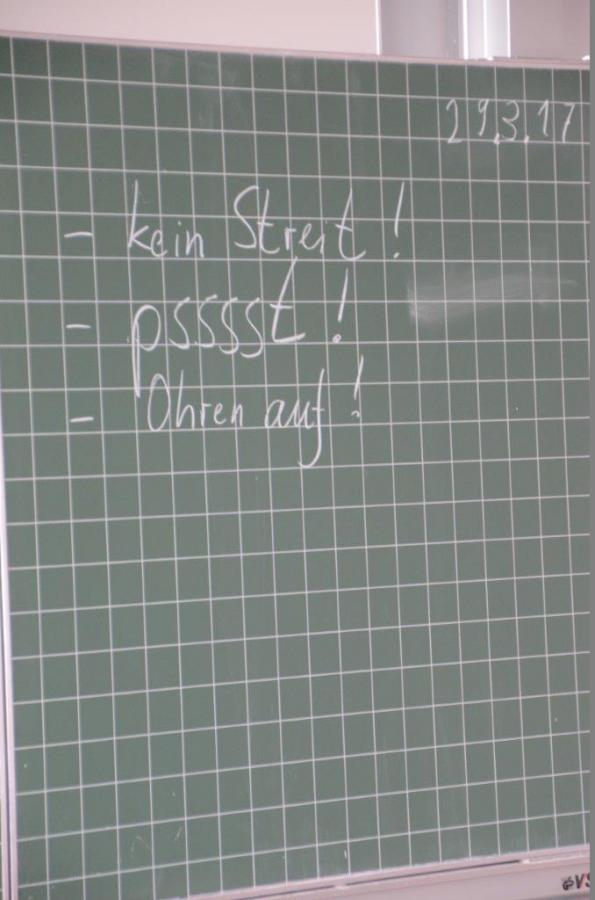 29.3.17
- kein Streit!
- psssst!
- Ohren auf!
VS